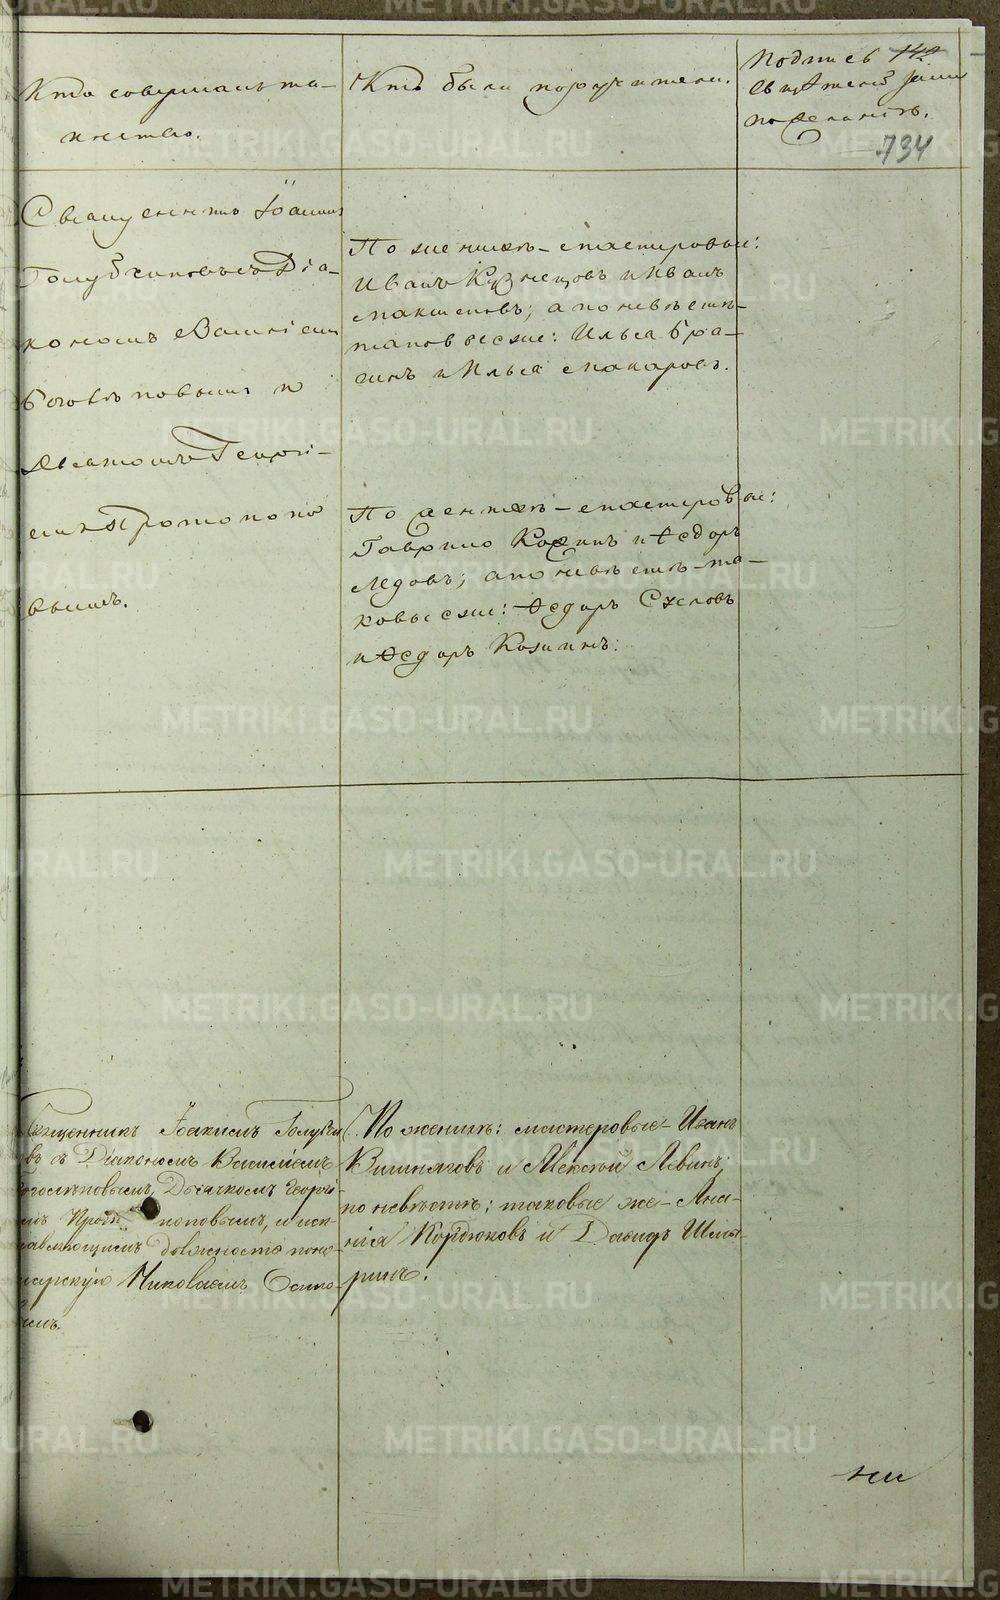 Кто совершалъ та-
инство.
Кто были поручители.
Подпись
свидѣтелей записи
по желанію.
734
Священникъ Іоаннъ
Голубчиковъ съ Діа-
кономъ Василіемъ
Боголѣповымъ и
Дьячкомъ Георгі-
емъ Протопопо
вымъ.
По женихѣ - мастеровые:
Иванъ Кузнецовъ и Иванъ
Макшеновъ; а по невѣстѣ
таковые же: Илья Бра-
гинъ и Илья Макаровъ.
По женихѣ - мастеровые:
Гаврило Козинъ и Ѳедоръ
Ледовъ; а по невѣстѣ - та-
ковые же: Ѳедоръ Сусловъ
и Ѳедоръ Козминъ:
Священникъ Іоакимъ
въ съ Діакономъ Василіемъ
Боголѣповымъ, Дьячкомъ Георгі-
емъ Прото поповымъ, и исп-
равляющимъ должность поно-
марскую Николаемъ
По женихѣ: мастеровые - Иванъ
Вишняговъ и Алексѣй Левинъ;
по невѣстѣ; таковые же - Ана-
нія Кордюковъ и Давидъ Шмы-
ринъ.
METRIKI.GASO-URAL.RU